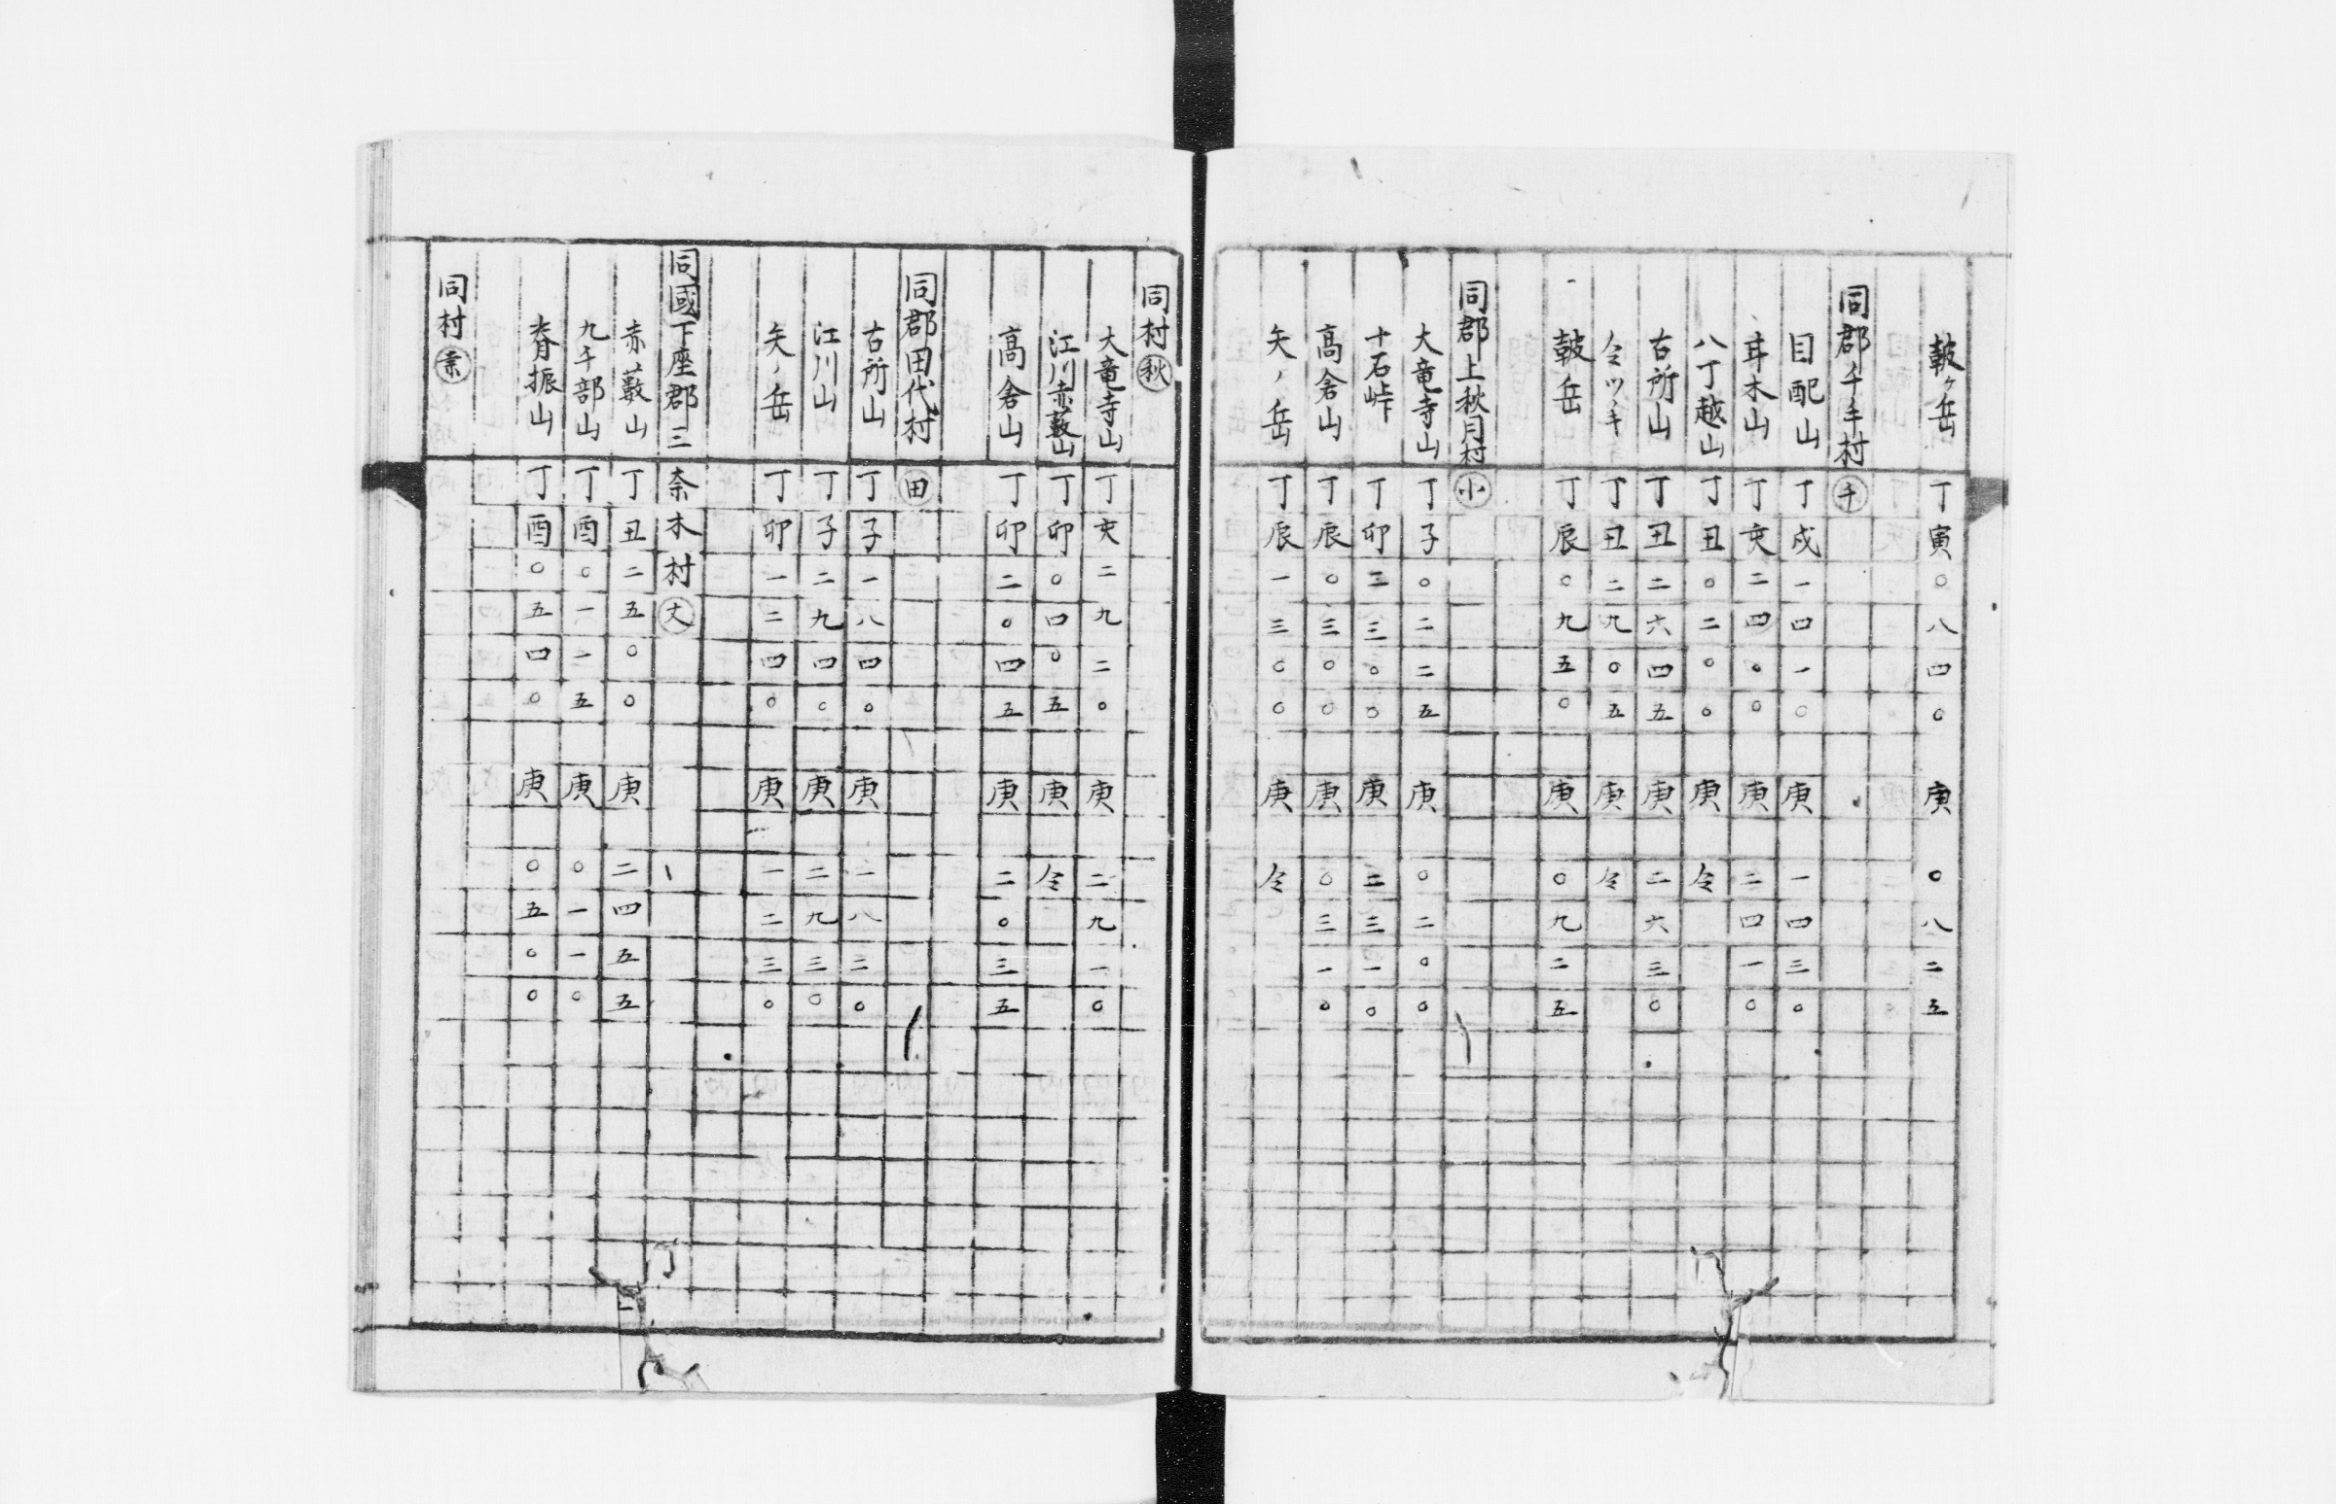 皷ヶ岳 丁寅〇八四〇 庚 〇八二五
同郡千手村 千
目配山 丁戌一四一〇 庚 一四三〇
茸木山 丁亥二四〇〇 庚 二四一〇
八丁越山 丁丑〇二〇〇 庚 仝
古所山 丁丑二六四五 庚 二六三〇
仝ツヽキ 丁丑二九〇五 庚 仝
皷岳 丁辰〇九五〇 庚 〇九二五
同郡上秋月村 小
大竜寺山 丁子〇二二五 庚 〇二〇〇
十石峠 丁卯二三〇〇 庚 二三一〇
高倉山 丁辰〇三〇〇 庚 〇三一〇
矢ノ岳 丁辰一三〇〇 庚 仝
同村 秋
大竜寺山 丁亥二九二〇 庚 二九一〇
江川赤藪山 丁卯〇四〇五 庚 仝
高倉山 丁卯二〇四五 庚 二〇三五
同郡田代村 田
古所山 丁子一八四〇 庚 一八三〇
江川山 丁子二九四〇 庚 二九三〇
矢ノ岳 丁卯一二四〇 庚 一二三〇
同國下座郡三奈木村 丈
赤藪山 丁丑二五〇〇 庚 二四五五
九千部山 丁酉〇一一五 庚 〇一一〇
脊振山 丁酉〇五四〇 庚 〇五〇〇
同村